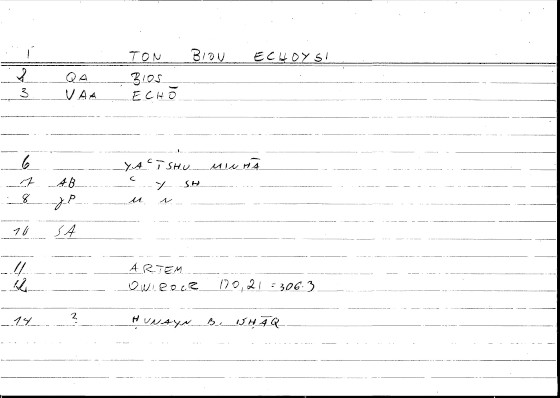 1 TON BIOU ECHOYSI
2 QA BIOS
3 VAA ECHŌ
6 YAᶜTSHU MINHĀ
7 AB ᶜ Y SH
8 GP M N
10 SA
11 ARTEM
12 ONIROCR 170,21 = 306.3
14 ? ḤUNAYN B. ISḤĀQ